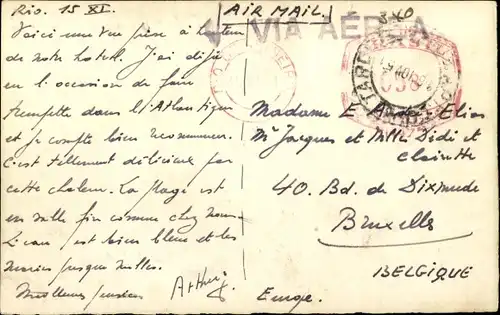 Rio. 15 XI.
AIR MAIL.
VIA AÉREA
Voici une vue prise à hauteur
de notre hotel. J'ai déjà
eu l'occasion de faire
trempette dans l'Atlantique
et je compte bien recommencer.
C'est tellement délicieux par
cette chaleur. La plage est
en sable fin comme chez nous.
L'eau est bien bleue et les
Meilleures pensées
Madame E André Elias
Mr Jacques et Mlle Didi et
Clairette
40. Bd. de Dixmude
Bruxelles
BELGIQUE
Europe.